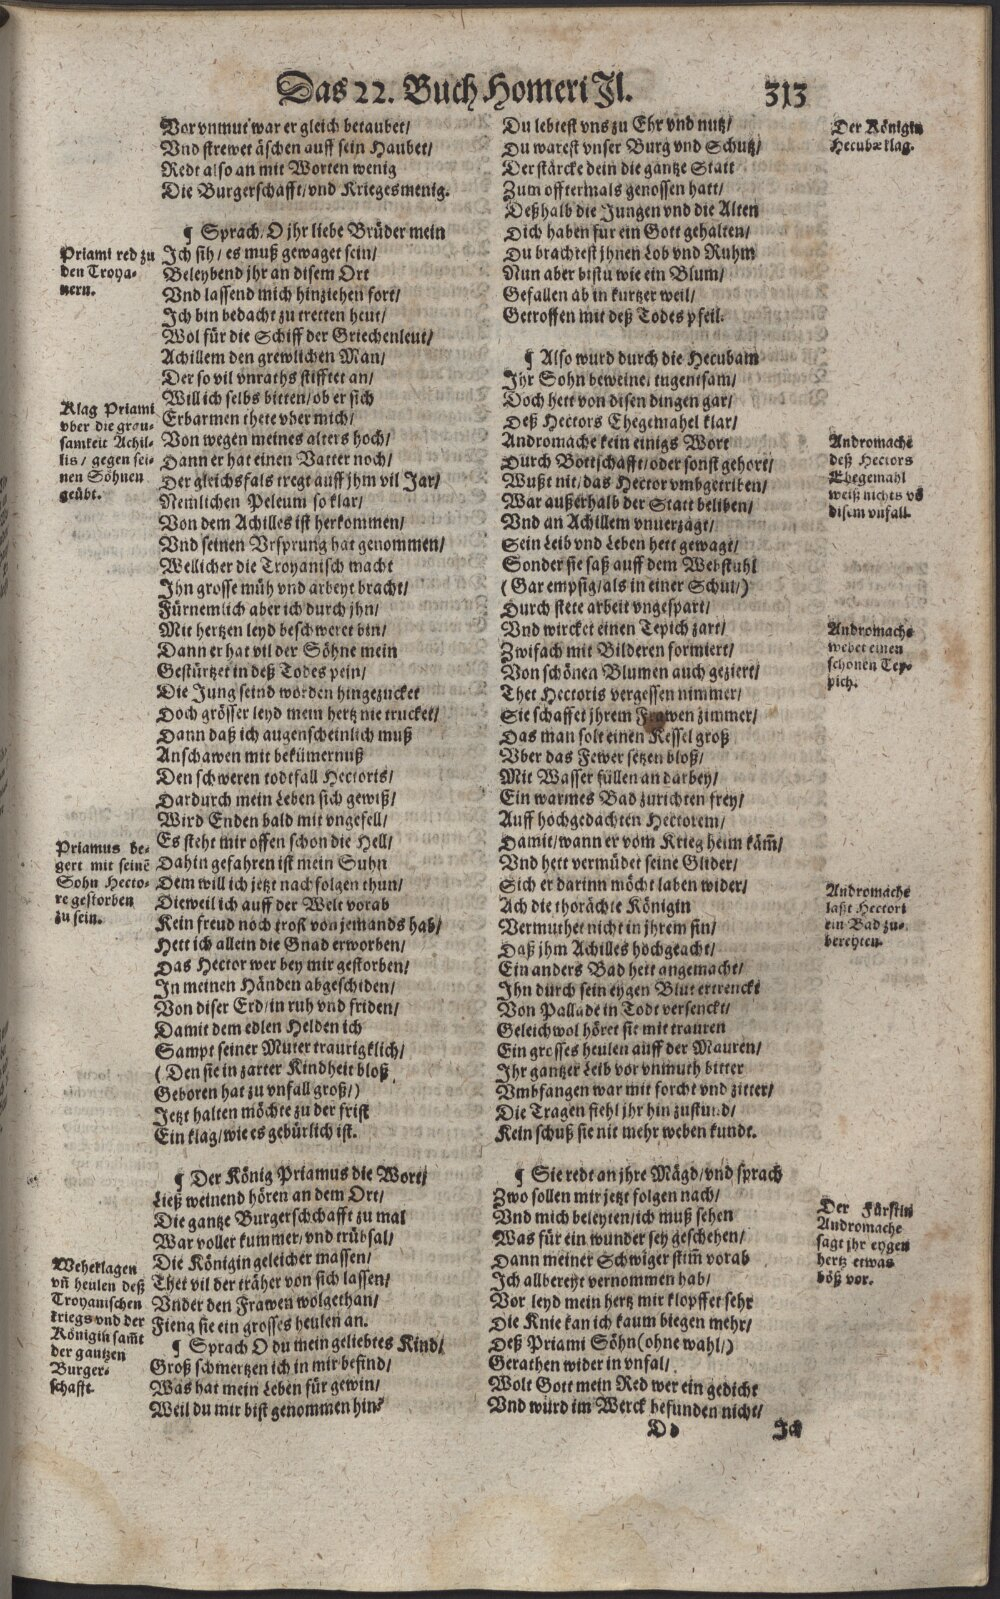 Das 22. Buch Homeri Jl. 313
Vor vnmut war er gleich betaubet/
Vnd strewet äschen auff sein Haubet/
Redt also an mit Worten wenig
Die Burgerschafft/ vnd Kriegesmenig.
¶ Sprach/ O jhr liebe Brüder mein
Priami red zu
den Troya-
nern.
Ich sih/ es muß gewaget sein/
Beleybend jhr an disem Ort
Vnd lassend mich hinziehen fort/
Ich bin bedacht zu tretten heut/
Wol für die Schiff der Griechenleut/
Achillem den grewlichen Man/
Der so vil vnraths stifftet an/
Will ich selbs bitten/ ob er sich
Klag Priami
vber die grau-
samkeit Achil-
lis/ gegen sei-
nen Söhnen
geübt.
Erbarmen thete vber mich/
Von wegen meines alters hoch/
Dann er hat einen Vatter noch/
Der gleichsfals tregt auff jhm vil Jar/
Nemlichen Peleum so klar/
Von dem Achilles ist herkommen/
Vnd seinen Vrsprung hat genommen/
Wellicher die Troyanisch macht
Ihn grosse müh vnd arbeyt bracht/
Fürnemlich aber ich durch jhn/
Mit hertzen leyd beschweret bin/
Dann er hat vil der Söhne mein
Gestürtzet in deß Todes pein/
Die Jung seind worden hingezucket
Doch grösser leyd mein hertz nie trucket/
Dann daß ich augenscheinlich muß
Anschawen mit bekümernuß
Den schweren todtfall Hectoris/
Dardurch mein Leben sich gewiß/
Wird Enden bald mit vngefell/
Es steht mir offen schon die Hell/
Priamus be-
gert mit seinē
Sohn Hecto-
re gestorben
zu sein.
Dahin gefahren ist mein Suhn
Dem will ich jetzt nachfolgen thun/
Dieweil ich auff der Welt vorab
Kein freud noch trost von jemands hab/
Hett ich allein die Gnad erworben/
Das Hector wer bey mir gestorben/
In meinen Händen abgeschiden/
Von diser Erd/ in ruh vnd friden/
Damit dem edlen Helden ich
Sampt seiner Muter traurigklich/
(Den sie in zarter Kindheit bloß
Geboren hat zu vnfall groß/)
Jetzt halten möchte zu der frist
Ein klag/ wie es gebürlich ist.
¶ Der König Priamus die Wort/
Ließ weinend hören an dem Ort/
Die gantze Burgerschchafft zu mal
War voller kummer/ vnd trübsal/
Die Königin geleicher massen/
Weheklagen
vñ heulen deß
Troyanischen
kriegs vnd der
Königin sam̃t
der gantzen
Burger-
schafft.
Thet vil der träher von sich lassen/
Vnder den Frawen wolgethan/
Fieng sie ein grosses heulen an.
¶ Sprach O du mein geliebtes Kind/
Groß schmertzen ich in mir befind/
Was hat mein Leben für gewin/
Weil du mir bist genommen hin?
Du lebtest vns zu Ehr vnd nutz/
Der Königin
Hecubæ klag.
Du warest vnser Burg vnd Schutz/
Der stärcke dein die gantze Statt
Zum offtermals genossen hatt/
Deßhalb die Jungen vnd die Alten
Dich haben für ein Gott gehalten/
Du brachtest jhnen Lob vnd Ruhm
Nun aber bistu wie ein Blum/
Gefallen ab in kurtzer weil/
Getroffen mit deß Todes pfeil.
¶ Also wurd durch die Hecubam
Ihr Sohn beweinet tugentsam/
Doch hett von disen dingen gar/
Deß Hectors Ehegemahel klar/
Andromache kein einigs Wort
Andromache
deß Hectors
Ehegemahl
weiß nichts vō
disem vnfall.
Durch Bottschafft/ oder sonst gehort/
Wußt nit/ das Hector vmbgetriben/
War außerhalb der Statt beliben/
Vnd an Achillem vnuerzagt/
Sein Leib vnd Leben hett gewagt/
Sonder sie saß auff dem Webstuhl
(Gar empsig/ als in einer Schul/)
Durch stete arbeit vngespart/
Vnd wircket einen Tepich zart/
Andromache
webet einen
schönen Tep-
pich.
Zwifach mit Bilderen formiert/
Von schönen Blumen auch geziert/
Thet Hectoris vergessen nimmer/
Sie schaffet jhrem Frawen zimmer/
Das man solt einen Kessel groß
Vber das Fewer setzen bloß/
Mit Wasser füllen an darbey/
Ein warmes Bad zurichten frey/
Auff hochgedachten Hectorem/
Damit/ wann er vom Krieg heim käm̃/
Vnd hett vermüdet seine Glider/
Sich er darinn möcht laben wider/
Andromache
laßt Hectori
ein Bad zu-
bereyten.
Ach die thorächte Königin
Vermuthet nicht in jhrem sin/
Daß jhm Achilles hochgeacht/
Ein anders Bad hett angemacht/
Ihn durch sein eygen Blut ertrenckt
Von Pallade in Todt versenckt/
Geleichwol höret sie mit trauren
Ein grosses heulen auff der Mauren/
Ihr gantzer Leib vor vnmuth bitter
Vmbfangen war mit forcht vnd zitter/
Die Tragen fiehl jhr hin zustund/
Kein schuß sie nit mehr weben kundt.
¶ Sie redt an jhre Mägd/ vnd sprach
Zwo sollen mir jetzt folgen nach/
Der Fürstin
Andromache
sagt jhr eygen
hertz etwas
böß vor.
Vnd mich beleyten/ ich muß sehen
Was für ein wunder sey geschehen/
Dann meiner Schwiger stim̃ vorab
Ich allbereyt vernommen hab/
Vor leyd mein hertz mir klopffet sehr
Die Knie kan ich kaum biegen mehr/
Deß Priami Söhn (ohne wahl/)
Gerathen wider in vnfal/
Wolt Gott mein Red wer ein gedicht
Vnd würd im Werck befunden nicht/
Dd Ich